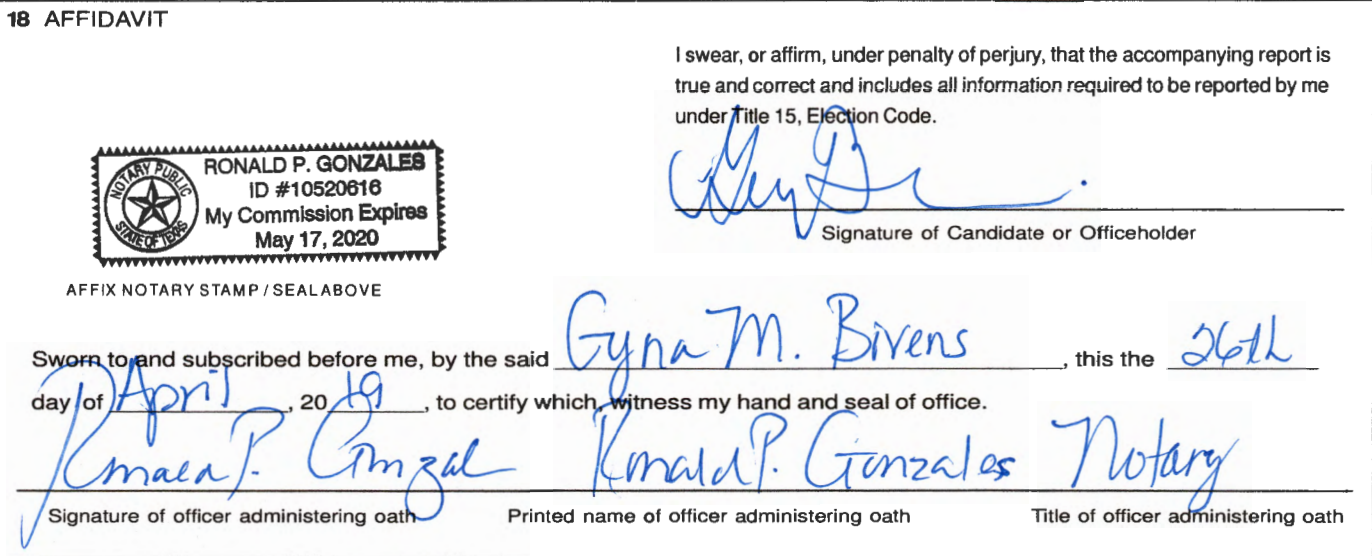 18 AFFIDAVIT
I swear, or affirm, under penalty of perjury, that the accompanying report is
true and correct and includes all information required to be reported by me
under Title 15, Election Code.
NOTARY PUBLIC
STATE OF TEXAS
RONALD P. GONZALES
ID #10520616
My Commission Expires
May 17, 2020
Signature of Candidate or Officeholder
AFFIX NOTARY STAMP / SEALABOVE
Sworn to and subscribed before me, by the said Gyna M. Bivens, this the 26th
day of April, 2019, to certify which, witness my hand and seal of office.
Ronald P. Gonzales Notary
Signature of officer administering oath Printed name of officer administering oath Title of officer administering oath